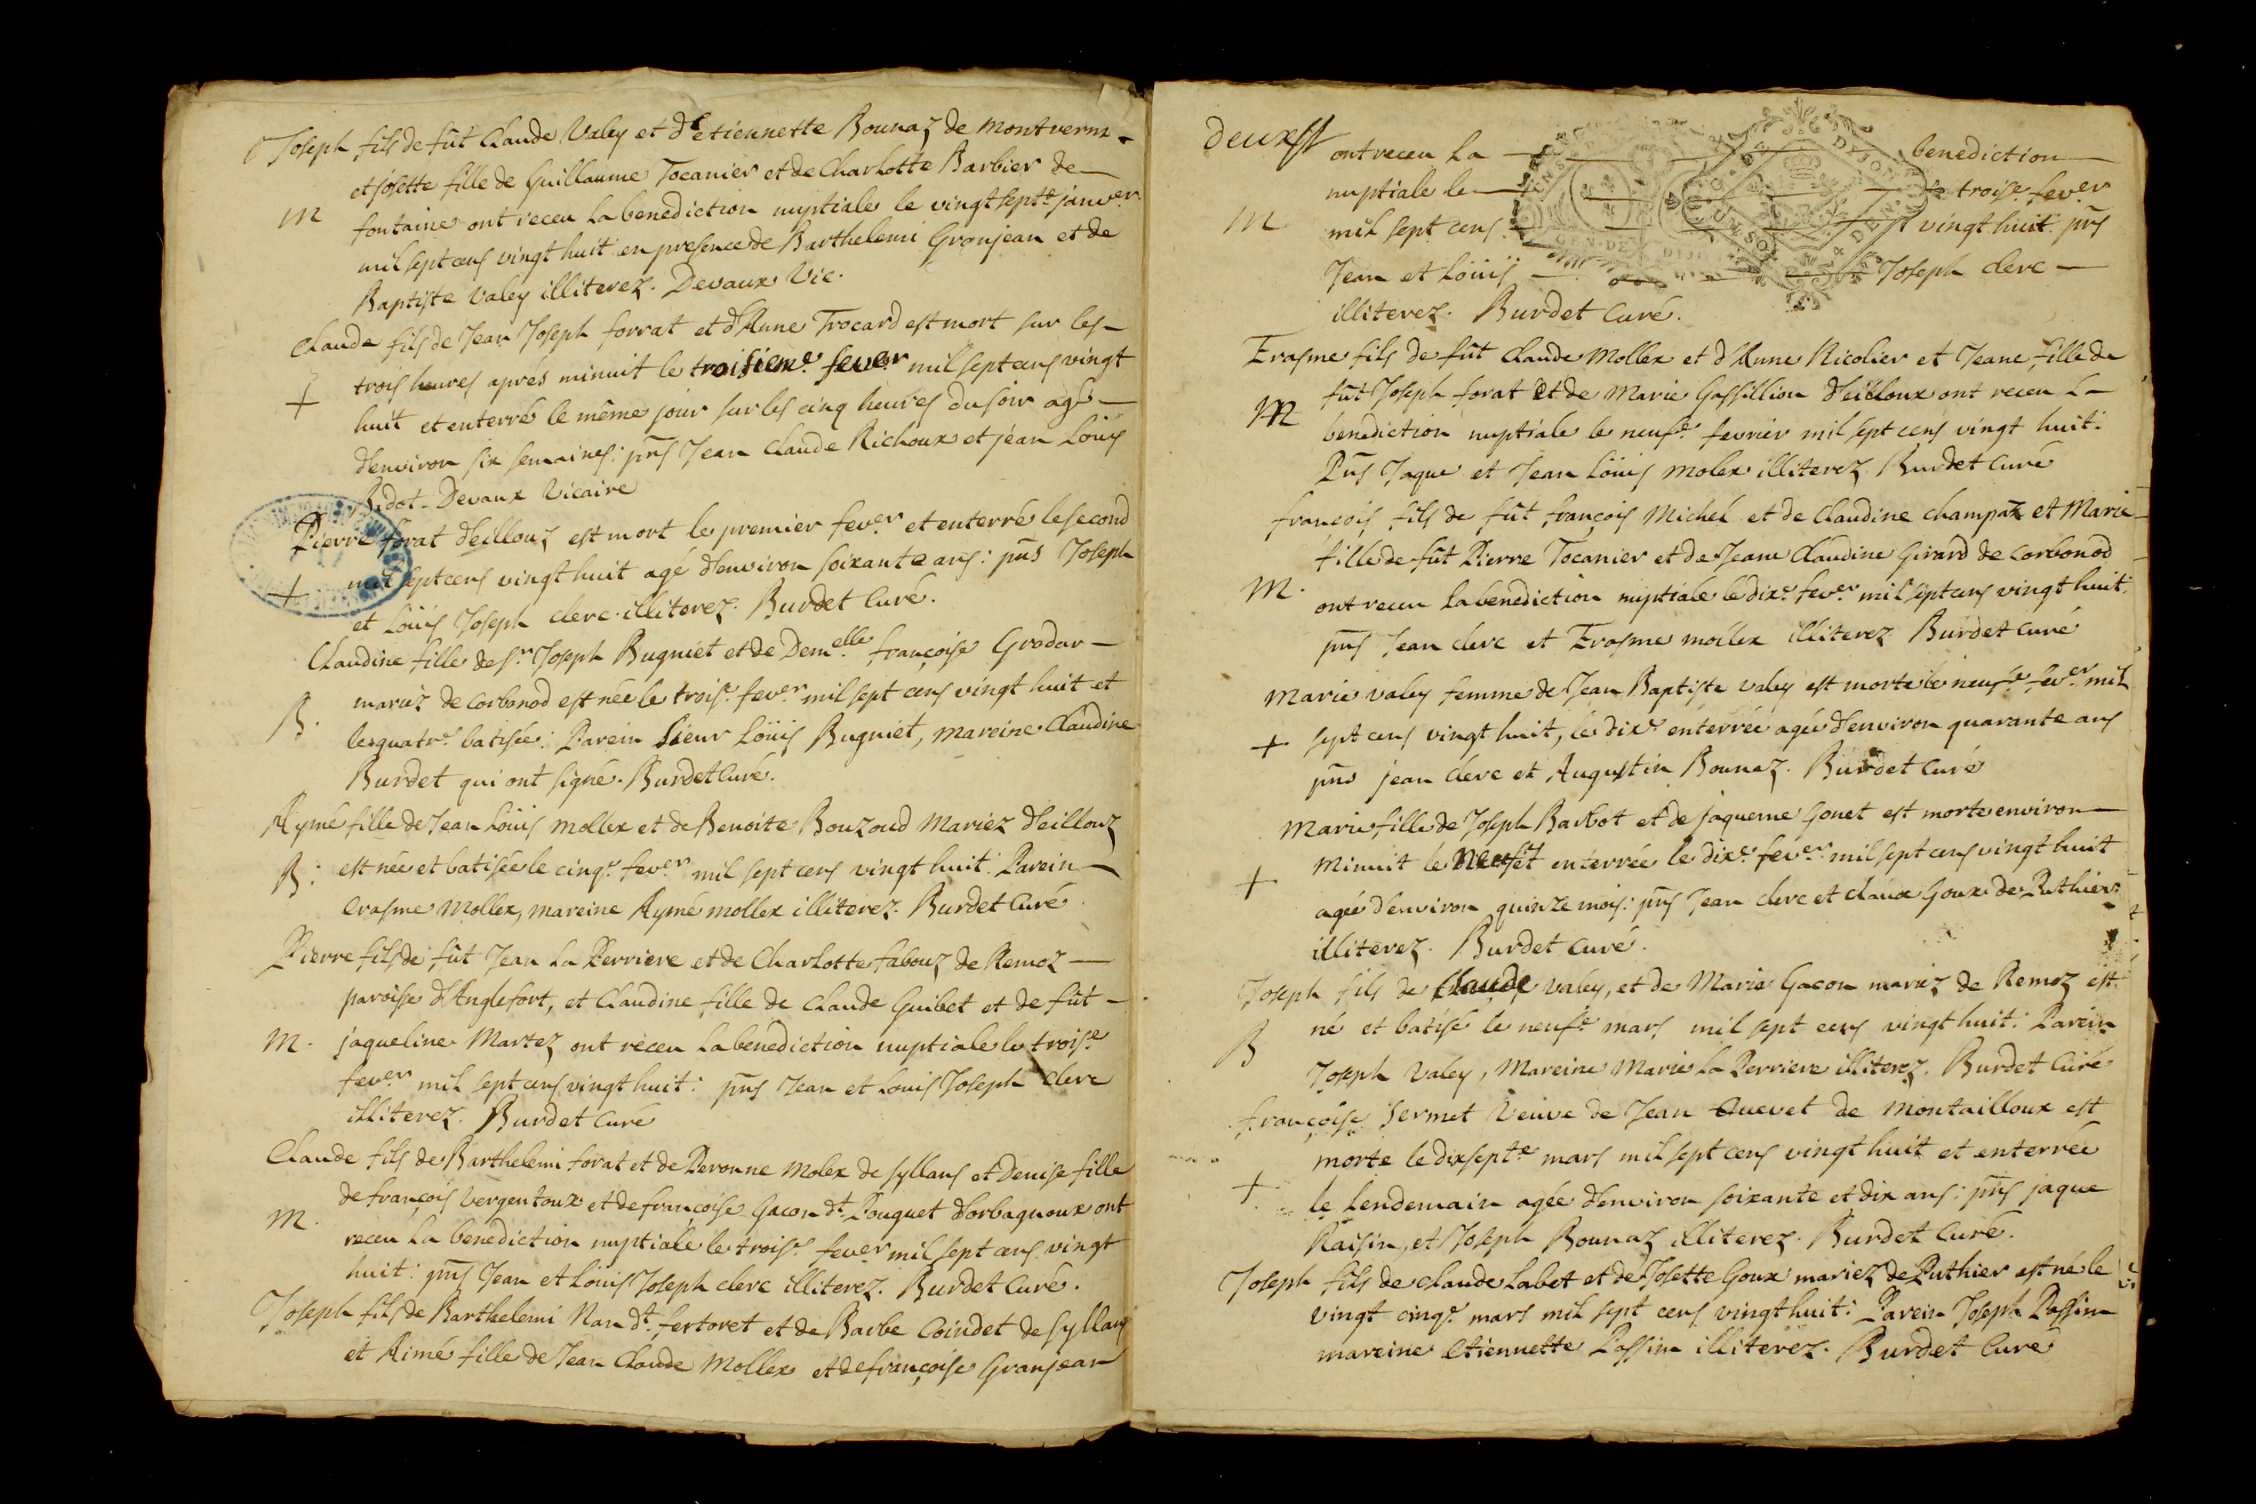 Joseph fils de fût Claude Valey et d'etiennette Bounaz de montverni
et Josette fille de Guillaume Tocanier et de Charlotte Barbier de
M
fontaine ont receu la benediction nuptiale le vingt septe janver
mil sept cens vingt huit en presence de Barthelemi Gronjean et de
Baptiste Valey illiterez. Devaux Vic.
Claude fils de Jean Joseph forrat et d'Anne Trocard est mort sur les
trois heures aprés minuit le troisieme fever mil sept cens vingt
+
huit et enterré le même jour sur les cinq heures du soir agé
d'environ six semaines: pñs Jean Claude Richoux et jéan Loüis
Bidot. Devaux Vicaire
Pierre forat d'eillouz est mort le premier fever et enterré le second
+
mil sept cens vingt huit agé d'environ soixante ans: pñs Joseph
et Loüis Joseph clerc illiterez. Burdet Curé.
Claudine fille de sr Joseph Bugniet et de Demelle françoise Grodar
B.
mariez de Corbonod est née le troise fever mil sept cens vingt huit et
le quatre batisée: Parein Sieur Loüis Bugniet, mareine Claudine
Burdet qui ont signé. Burdet Curé.
Aymé fille de Jean Loüis mollex et de Benoite Bouzoud Mariez d'eillouz
B:
est née et batisée le cinqe fever mil sept cens vingt huit: Parein
Erasme Mollex, mareine Aymé mollex illiterez. Burdet Curé.
Pierre fils de fût Jean La Perriere et de Charlotte fabouz de Remoz
paroisse d'Anglefort, et Claudine fille de Claude Guibet et de fût
M.
jaqueline Martez ont receu la benediction nuptiale le troise
fever mil sept cens vingt huit: pñs Jean et Louis Joseph Clerc
illiterez. Burdet Curé
Claude fils de Barthelemi forat et de Peronne Molex de syllans et Denise fille
de françois Vergentoux et de françoise Gacon dt Pouquet d'orbagnoux ont
M.
receu la benediction nuptiale le troise fever mil sept cens vingt
huit: pñs Jean et Louis Joseph clerc illiterez. Burdet Curé.
Joseph fils de Barthelemi Nan dt fertoret et de Barbe Coindet de syllans
et Aimé fille de Jean Claude Mollex et de françoise Gransean
deuxe ff
ont receu la benediction
nuptiale le troise fever
M
mil sept cens vingt huit pñs
Jean et Loüis Joseph clerc
illiterez. Burdet Curé.
Erasme fils de fût Claude Mollex et d'Anne Nicolier et Jeane fille de
fût Joseph forat et de Marie Gassillion d'eilloux ont receu la
M
benediction nuptiale le neufe fevrier mil sept cens vingt huit:
Pñs Jaque et Jean Loüis molex illiterez Burdet Curé
françois fils de fût françois Michel et de Claudine champaz et Marie
fille de fût Pierre Tocanier et de Jeane Claudine Girard de Corbonod
M.
ont receu la benediction nuptiale le dixe fever mil sept cens vingt huit:
pñs Jean clerc et Erasme mollex illiterez Burdet curé
Marie valey femme de Jean Baptiste Valey est morte le neufe fever mil
+
sept cens vingt huit, le dixe enterrée agée d'environ quarante ans
pñs jean clerc et Augustin Bounaz. Burdet Curé
Marie fille de Joseph Barbot et de jaqueme Gonet est morte environ
Minuit le Neuf et enterrée le dixe fever mil sept cens vingt huit
+
agée d'environ quinze mois: pñs Jean clerc et claude Goux de Puthier
illiterez. Burdet Curé.
Joseph fils de Claude valey, et de Marie Gacon mariez de Remoz est
né et batisé le neufe mars mil sept cens vingt huit: Parein
B
Joseph Valey, Mareine Marie La Perriere illiterez. Burdet Curé
françoise Sermet Veuve de Jean Quevet de Montailloux est
morte le dixsepte mars mil sept cens vingt huit et enterrée
+
le lendemain agée d'environ soixante et dix ans: pñs jaque
Raisin, et Joseph Bounaz illiterez. Burdet Curé.
Joseph fils de Claude Labet et de Josette Goux mariez de Puthier est né le
vingt cinqe mars mil sept cens vingt huit: Parein Joseph Passin
mareine Etiennette Passin illiterez. Burdet Curé